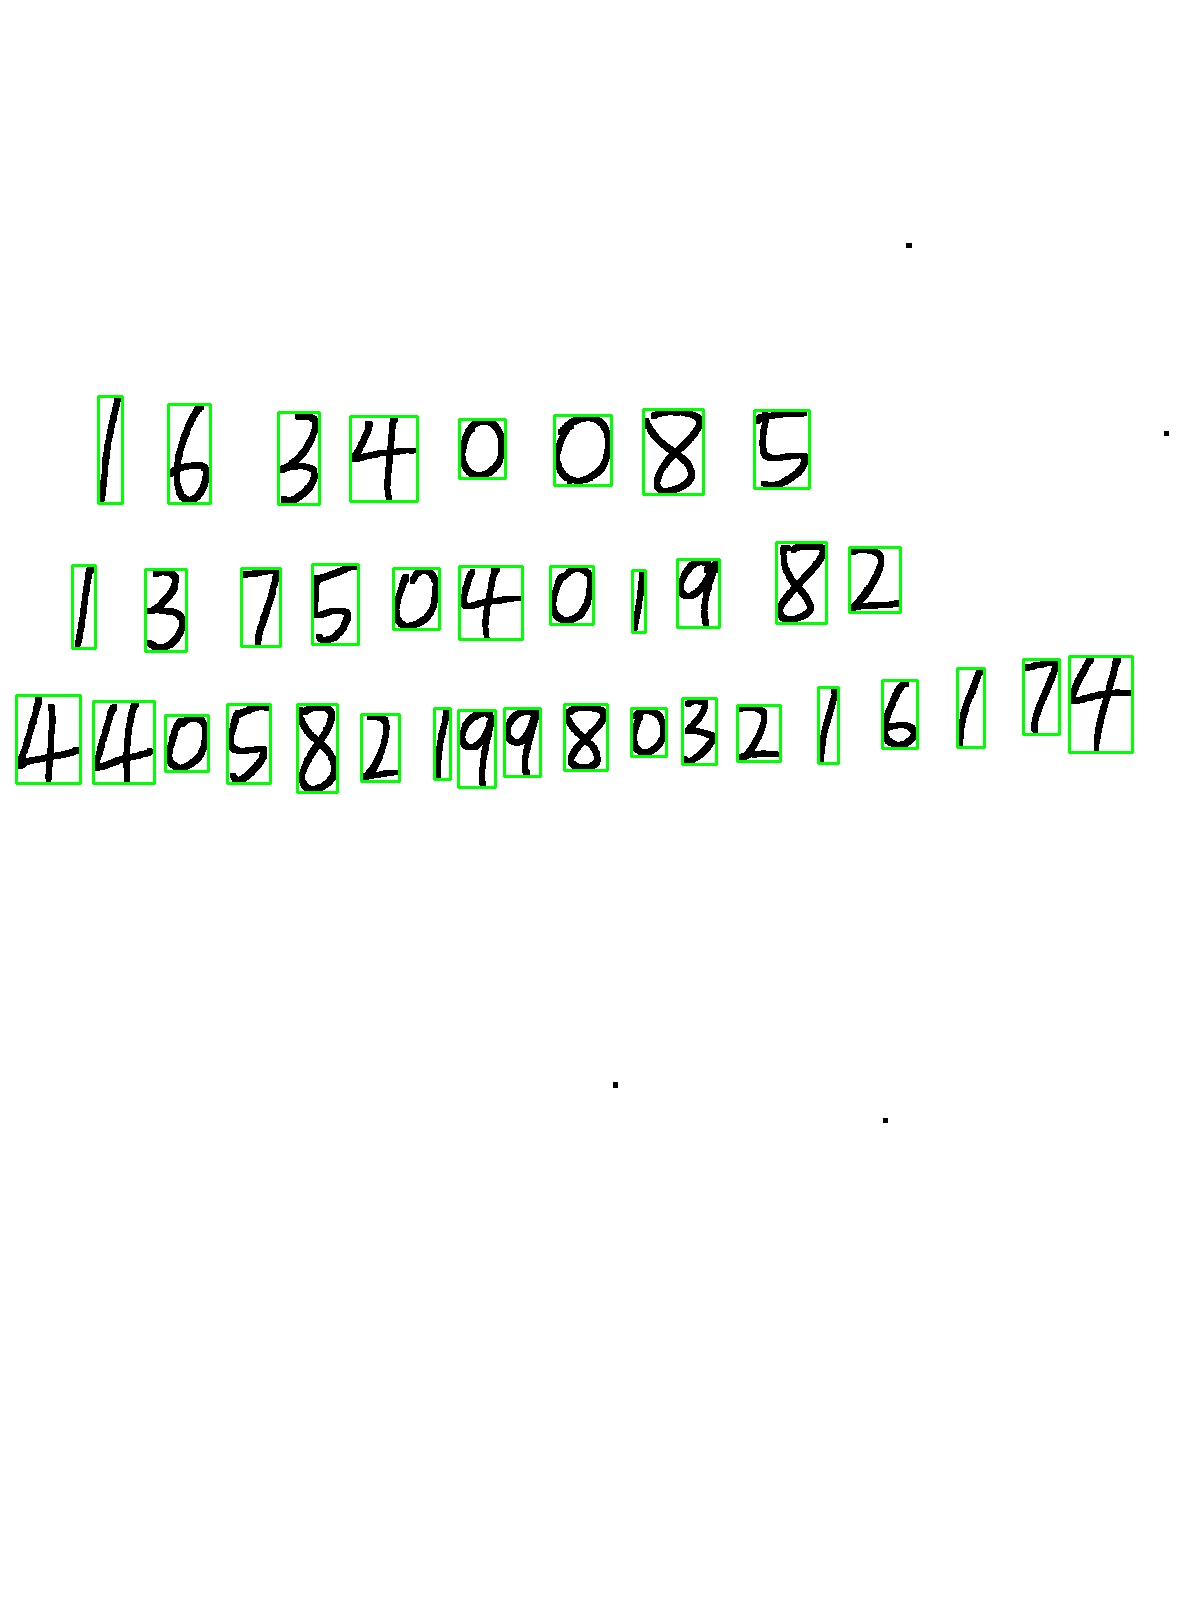 1 6 3 4 0 0 8 5
1 3 7 5 0 4 0 1 9 8 2
4 4 0 5 8 2 1 9 9 8 0 3 2 1 6 1 7 4